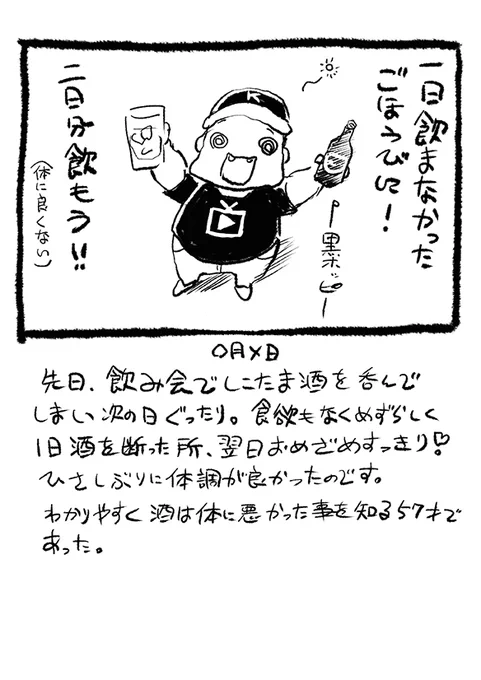 一日飲まなかった
ごほうびに!
黒ホッピー
二日分飲もう!!
(体に良くない)
K
〇月×日
先日、飲み会でしこたま酒を呑んで
しまい次の日ぐったり。食欲もなくめずらしく
1日酒を断った所、翌日おめざめすっきり♡
ひさしぶりに体調が良かったのです。
わかりやすく酒は体に悪かった事を知る57才で
あった。